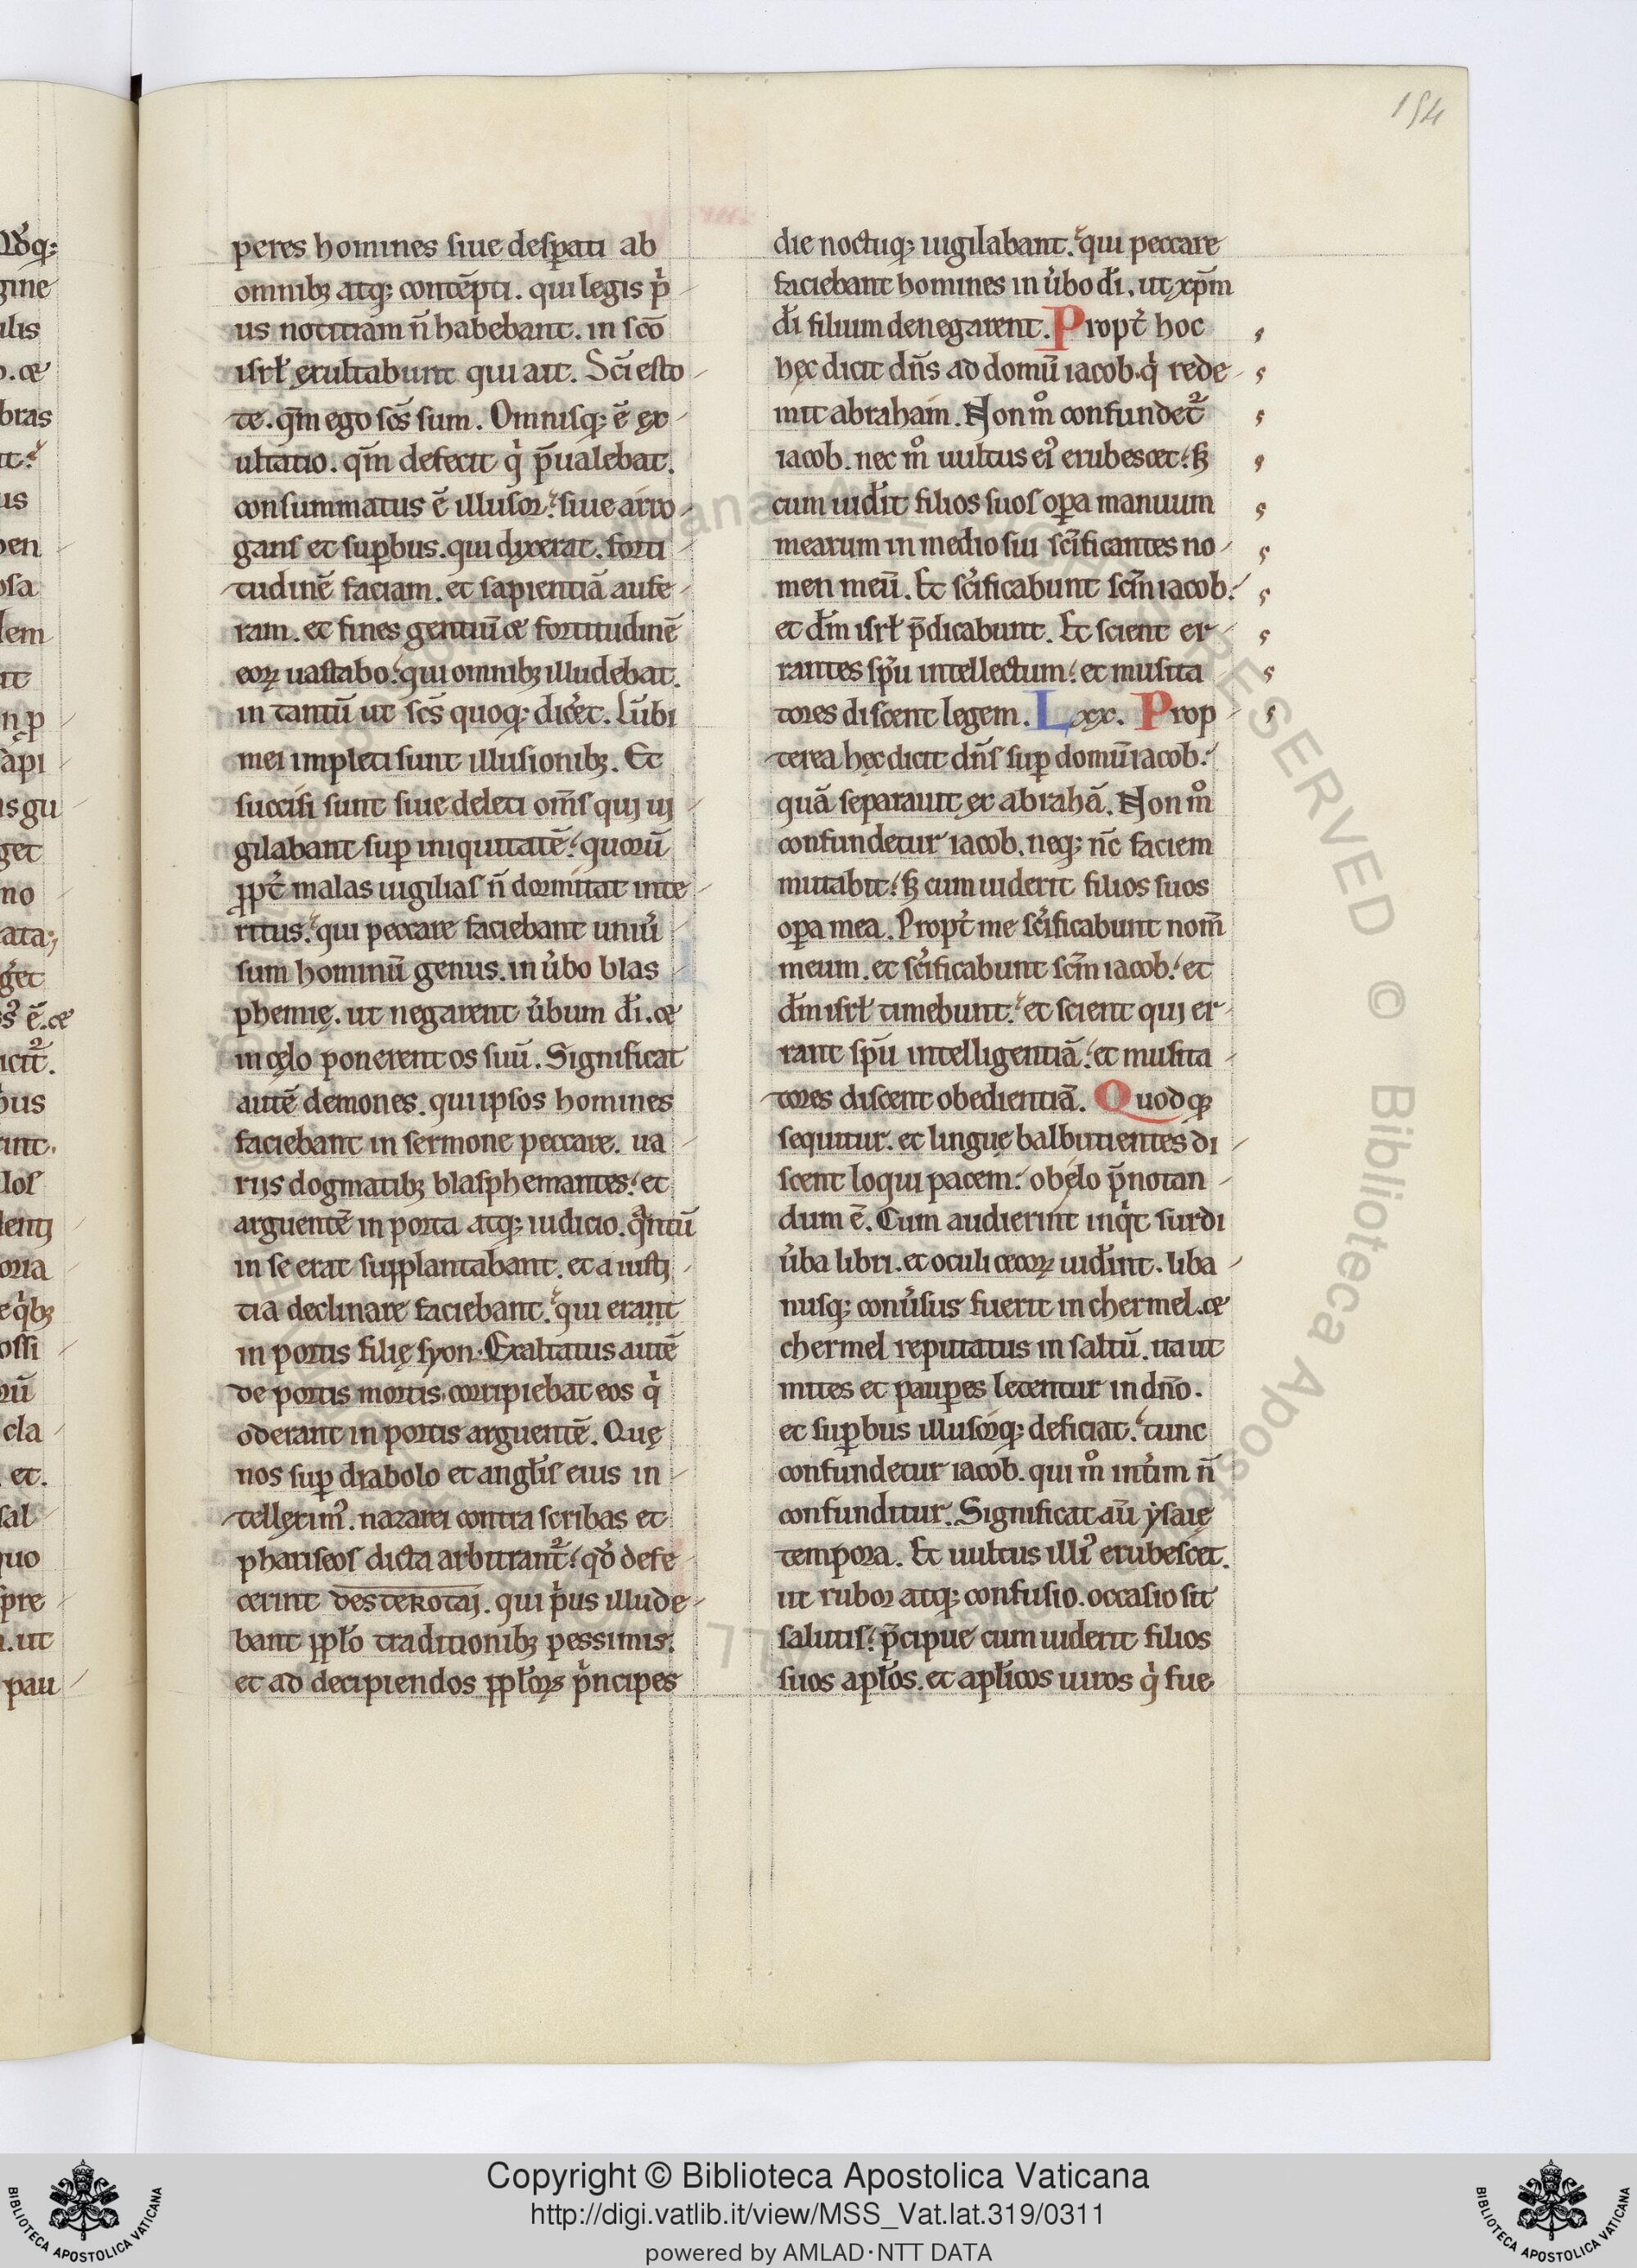 154
peres homines siue desꝑati ab
omnibꝫ atqꝫ contēpti. qui legis p͛
us notitiam n̄ habebant. in sc̄o
isrł exultabunt qui ait. Sc̄i esto
te. qm̄ ego sc̄s sum. Omnisqꝫ ē ex
ultatio. qm̄ defecit q͛ p̄ualebat.
consummatus ē illusor. siue arro
gans et suꝑbus. qui dixerat. forti
tudinē faciam. et sapientiā aufe
ram. et fines gentiū ⁊ fortitudinē
eoꝝ uastabo. qui omnibꝫ illudebat.
in tantū ut sc̄s quoqꝫ dic͛et. Lūbi
mei impleti sunt illusionibꝫ. Et
succisi sunt siue deleti om̄s qui ui
gilabant suꝑ iniquitatē. quorū
ꝓpt͛ malas uigilias n̄ dormitat inte
ritus. qui peccare faciebant uniu͛
sum hominū genus. in u͛bo blas
phemię. ut negarent u͛bum dī. ⁊
in cęlo ponerent os suū. Significat
autē demones. qui ipsos homines
faciebant in sermone peccare. ua
rijs dogmatibꝫ blasphemantes. et
arguentē in porta atqꝫ iudicio. qͣntū
in se erat supplantabant. et a iusti
tia declinare faciebant. qui erant
in portis filię syon. Exaltatus autē
de portis mortis. corripiebat eos q͛
oderant in portis arguentē. Quę
nos suꝑ diabolo et angłis eius in
tellexim᾽. nazarei contra scribas et
phariseos dicta arbitrant᷑. qď defe
cerint desterotaj. qui p͛us illude
bant ppło traditionibꝫ pessimis.
et ad decipiendos ppłoꝝ p͛ncipes
die noctuqꝫ uigilabant. qui peccare
faciebant homines in u͛bo dī. ut xp̄m
dī filium denegarent. Propt͛ hoc
hęc dicit dn̄s ad domū iacob. q͛ rede
mit abraham. Non mͦ confundet᷑
iacob. nec mͦ uultus ei᾽ erubescet. sꝫ
cum uid͛it filios suos oꝑa manuum
mearum in medio sui sc̄ificantes no
men meū. Et sc̄ificabunt sc̄m iacob.
et dm̄ isrł p̄dicabunt. Et scient er
rantes spū intellectum. et musita
tores discent legem. Lxx. Prop
terea hęc dicit dn̄s suꝑ domū iacob.
quā separauit ex abrahā. Non mͦ
confundetur iacob. neqꝫ nc̄ faciem
mutabit. sꝫ cum uiderit filios suos
oꝑa mea. Propt͛ me sc̄ificabunt nom̄
meum. et sc̄ificabunt sc̄m iacob. et
dm̄ isrł timebunt. et scient qui er
rant spū intelligentiā. et musita
tores discent obedientiā. Quodqꝫ
sequitur. et linguę balbutientes di
scent loqui pacem. obelo p̄notan
dum ē. Cum audierint inq͛t surdi
u͛ba libri. et oculi cecoꝝ uid͛int. liba
nusqꝫ conu͛sus fuerit in chermel. ⁊
chermel reputatus in saltū. ita ut
mites et pauꝑes letentur in dn̄o.
et suꝑbus illusorqꝫ deficiat. tunc
confundetur iacob. qui mͦ int͛im n̄
confunditur. Significat aū ysaię
tempora. Et uultus illi᾽ erubescet.
ut rubor atqꝫ confusio. occasio sit
salutis. p̄cipue cum uiderit filios
suos apłos. et apłicos uiros q͛ fue
Copyright © Biblioteca Apostolica Vaticana
http://digi.vatlib.it/view/MSS_Vat.lat.319/0311
powered by AMLAD·NTT DATA
BIBLIOTECA APOSTOLICA VATICANA
BIBLIOTECA APOSTOLICA VATICANA